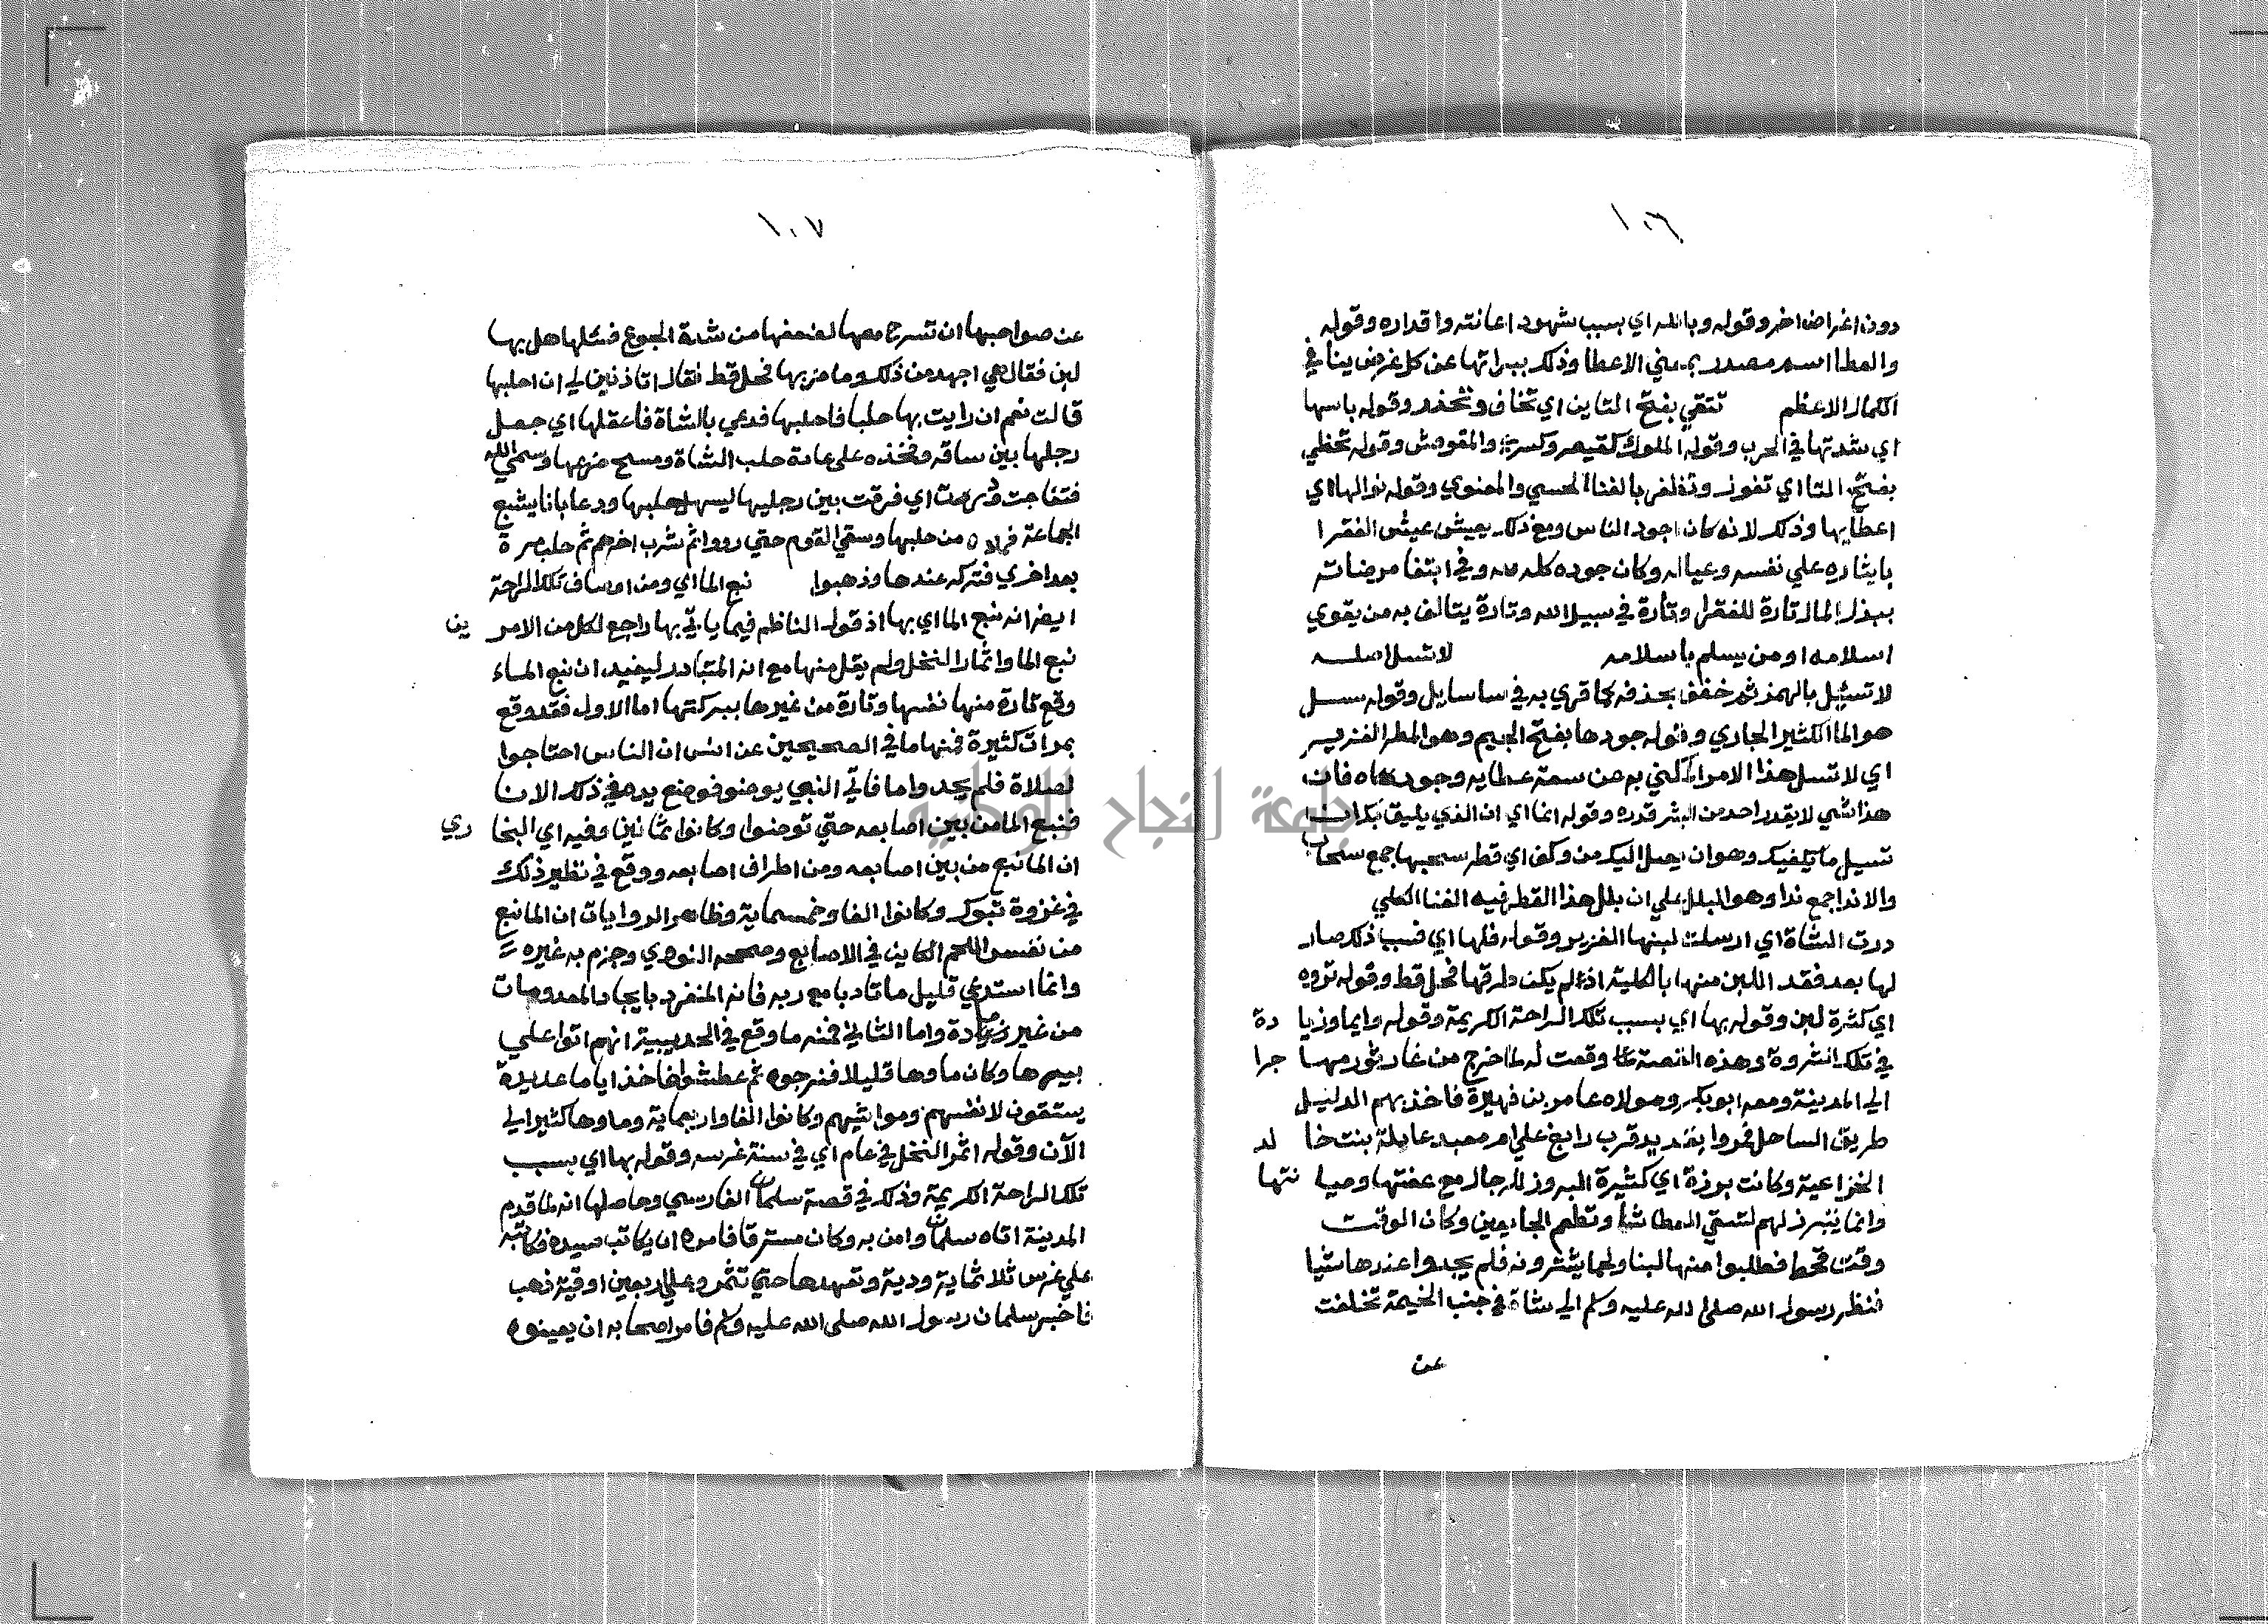 ١٠٦
دون اغراض اخر وقوله وبالله اي بسبب شهود اعانته واقداره وقوله
والعطا اسم مصدر بمعني الاعطا وذلك ببراتها عن كل غرض ينافي
الكمال الاعظم تتقي بفتح التاين اي تخاف وتحذر وقوله باسها
اي شدتها في الحرب وقوله الملوك كقيصر وكسري والمقوقس وقوله تحظي
بفتح التا اي تفوز وتظفر بالغنا الحسي والمعنوي وقوله نوالها اي
اعطايها وذلك لانه كان اجود الناس ومع ذلك يعيش عيش الفقرا
بايثاره علي نفسه وعياله وكان جوده كله لله وفي ابتغا مرضاته
ببذل المال تارة للفقرا وتارة في سبيل الله وتارة يتالف به من يقوي
اسلامه او من يسلم باسلامه لا تسل اصله
لا تسئيل بالهمز ثم خفف بحذفه كما قري به في سا سايل وقوله سيل
هو الما الكثير الجاري وقوله جودها بفتح الجيم وهو المطر الغزير
اي لا تسل هذا الامر الكني به من سعة عطايه وجود كفاه فان
هذا شي لا يقدر احد من البشر قدره وقوله انما اي ان الذي يليق بك ان
تسيل ما يكفيك وهو ان يصل اليك من وكف اي قطر سحبها جمع سحاب
والاندا جمع ندا وهو البلل علي ان بلل هذا القطر فيه الغنا الكلي
درت الشاة اي ارسلت لبنها الغزير وقوله فلها اي فسبب ذلك صار
لها بعد فقد اللبن منها بالكلية اذ لم يكن طرقها فحل قط وقوله ثروه
اي كثرة لبن وقوله بها اي بسبب تلك الراحة الكريمة وقوله وايما وزيا دة
في تلك الثروة وهذه القصة لما وقعت له لما خرج من غار ثور مها جرا
الي المدينة ومعه ابو بكر ومولاه عامر بن فهيرة فاخذ بهم الدليل
طريق الساحل فمروا بقديد قرب رابغ علي ام معبد عايلة بنت خا لد
الخزاعية وكانت برزة اي كثيرة البروز للرجال مع عفتها وصيا نتها
وانما يتبرز لهم لتسقي العطاشا وتطعم الجايعين وكان الوقت
وقت قحط فطلبوا منها لبنا ولحما يشترونه فلم يجدوا عندها شيا
فنظر رسول الله صلي الله عليه وسلم الي شاة في جنب الخيمة تخلفت
عن
١٠٧
عن صواحبها ان تسرح معها لضعفها من شدة الجوع فسئلها هل بها
لبن فقال هي اجهد من ذلك وما مر بها فحل قط فقال اتاذنين لي ان احلبها
قالت نعم ان رايت بها حلبا فاحلبها فدعي بالشاة فاعقلها اي جعل
رجلها بين ساقه وفخذه علي عادة حلب الشاة ومسح ضرعها وسمي الله
فتفاجت ودرت اي فرقت بين رجليها ليسهل حلبها ودعا بانا يشبع
الجماعة فملاه من حلبها وسقي القوم حتي رووا ثم شرب اخرهم ثم حلب مرة
بعد اخري فتركه عندها وذهبوا نبع الما اي ومن اوصاف تلك الراحة
ايضا انه نبع الما اي بها اذ قول الناظم فيما ياتي بها راجع لكل من الامر ين
نبع الما واثمار النخل ولم يقل منها مع انه المتبادر ليفيد ان نبع الماء
وقع تارة منها نفسها وتارة من غيرها ببركتها اما الاول فقد وقع
بمرات كثيرة فمنها ما في الصحيحين عن انس ان الناس احتاجوا
لصلاة فلم يجدوا ما فاتي النبي بوضو فوضع يده في ذلك الانا
فنبع الما من بين اصابعه حتي توضوا وكانوا ثمانين وفيه اي البخا ري
ان الما نبع من بين اصابعه ومن اطراف اصابعه ووقع في نظير ذلك
في غزوة تبوك وكانوا الفا وخمسماية وظاهر الروايات ان الما نبع
من نفس اللحم الكاين في الاصابع وصححه النووي وجزم به غيره
وانما استدعي قليل ما تادبا مع ربه فانه المنفرد بايجاد المعدومات
من غير مادة واما الثاني فمنه ما وقع في الحديبية انهم اتوا علي
بيرها وكان ماوها قليلا فنزحوه ثم عطشوا فاخذ اياما عديدة
يستقون لانفسهم ومواشيهم وكانوا الفا واربعماية وماوها كثير الي
الآن وقوله اثمر النخل في عام اي في سنة غرسه وقوله بها اي بسبب
تلك الراحة الكريمة وذلك في قصة سلمان الفارسي وحاصلها انه لما قدم
المدينة اتاه سلمان وامن به وكان مسترقا فامره ان يكاتب سيده فكاتبه
علي غرس ثلاثماية ودية وتعهدها حتي تثمر وعلي اربعين اوقية ذهب
فاخبر سلمان رسول الله صلي الله عليه وسلم فامر اصحابه ان يعينوه
جامعة النجاح الوطنية